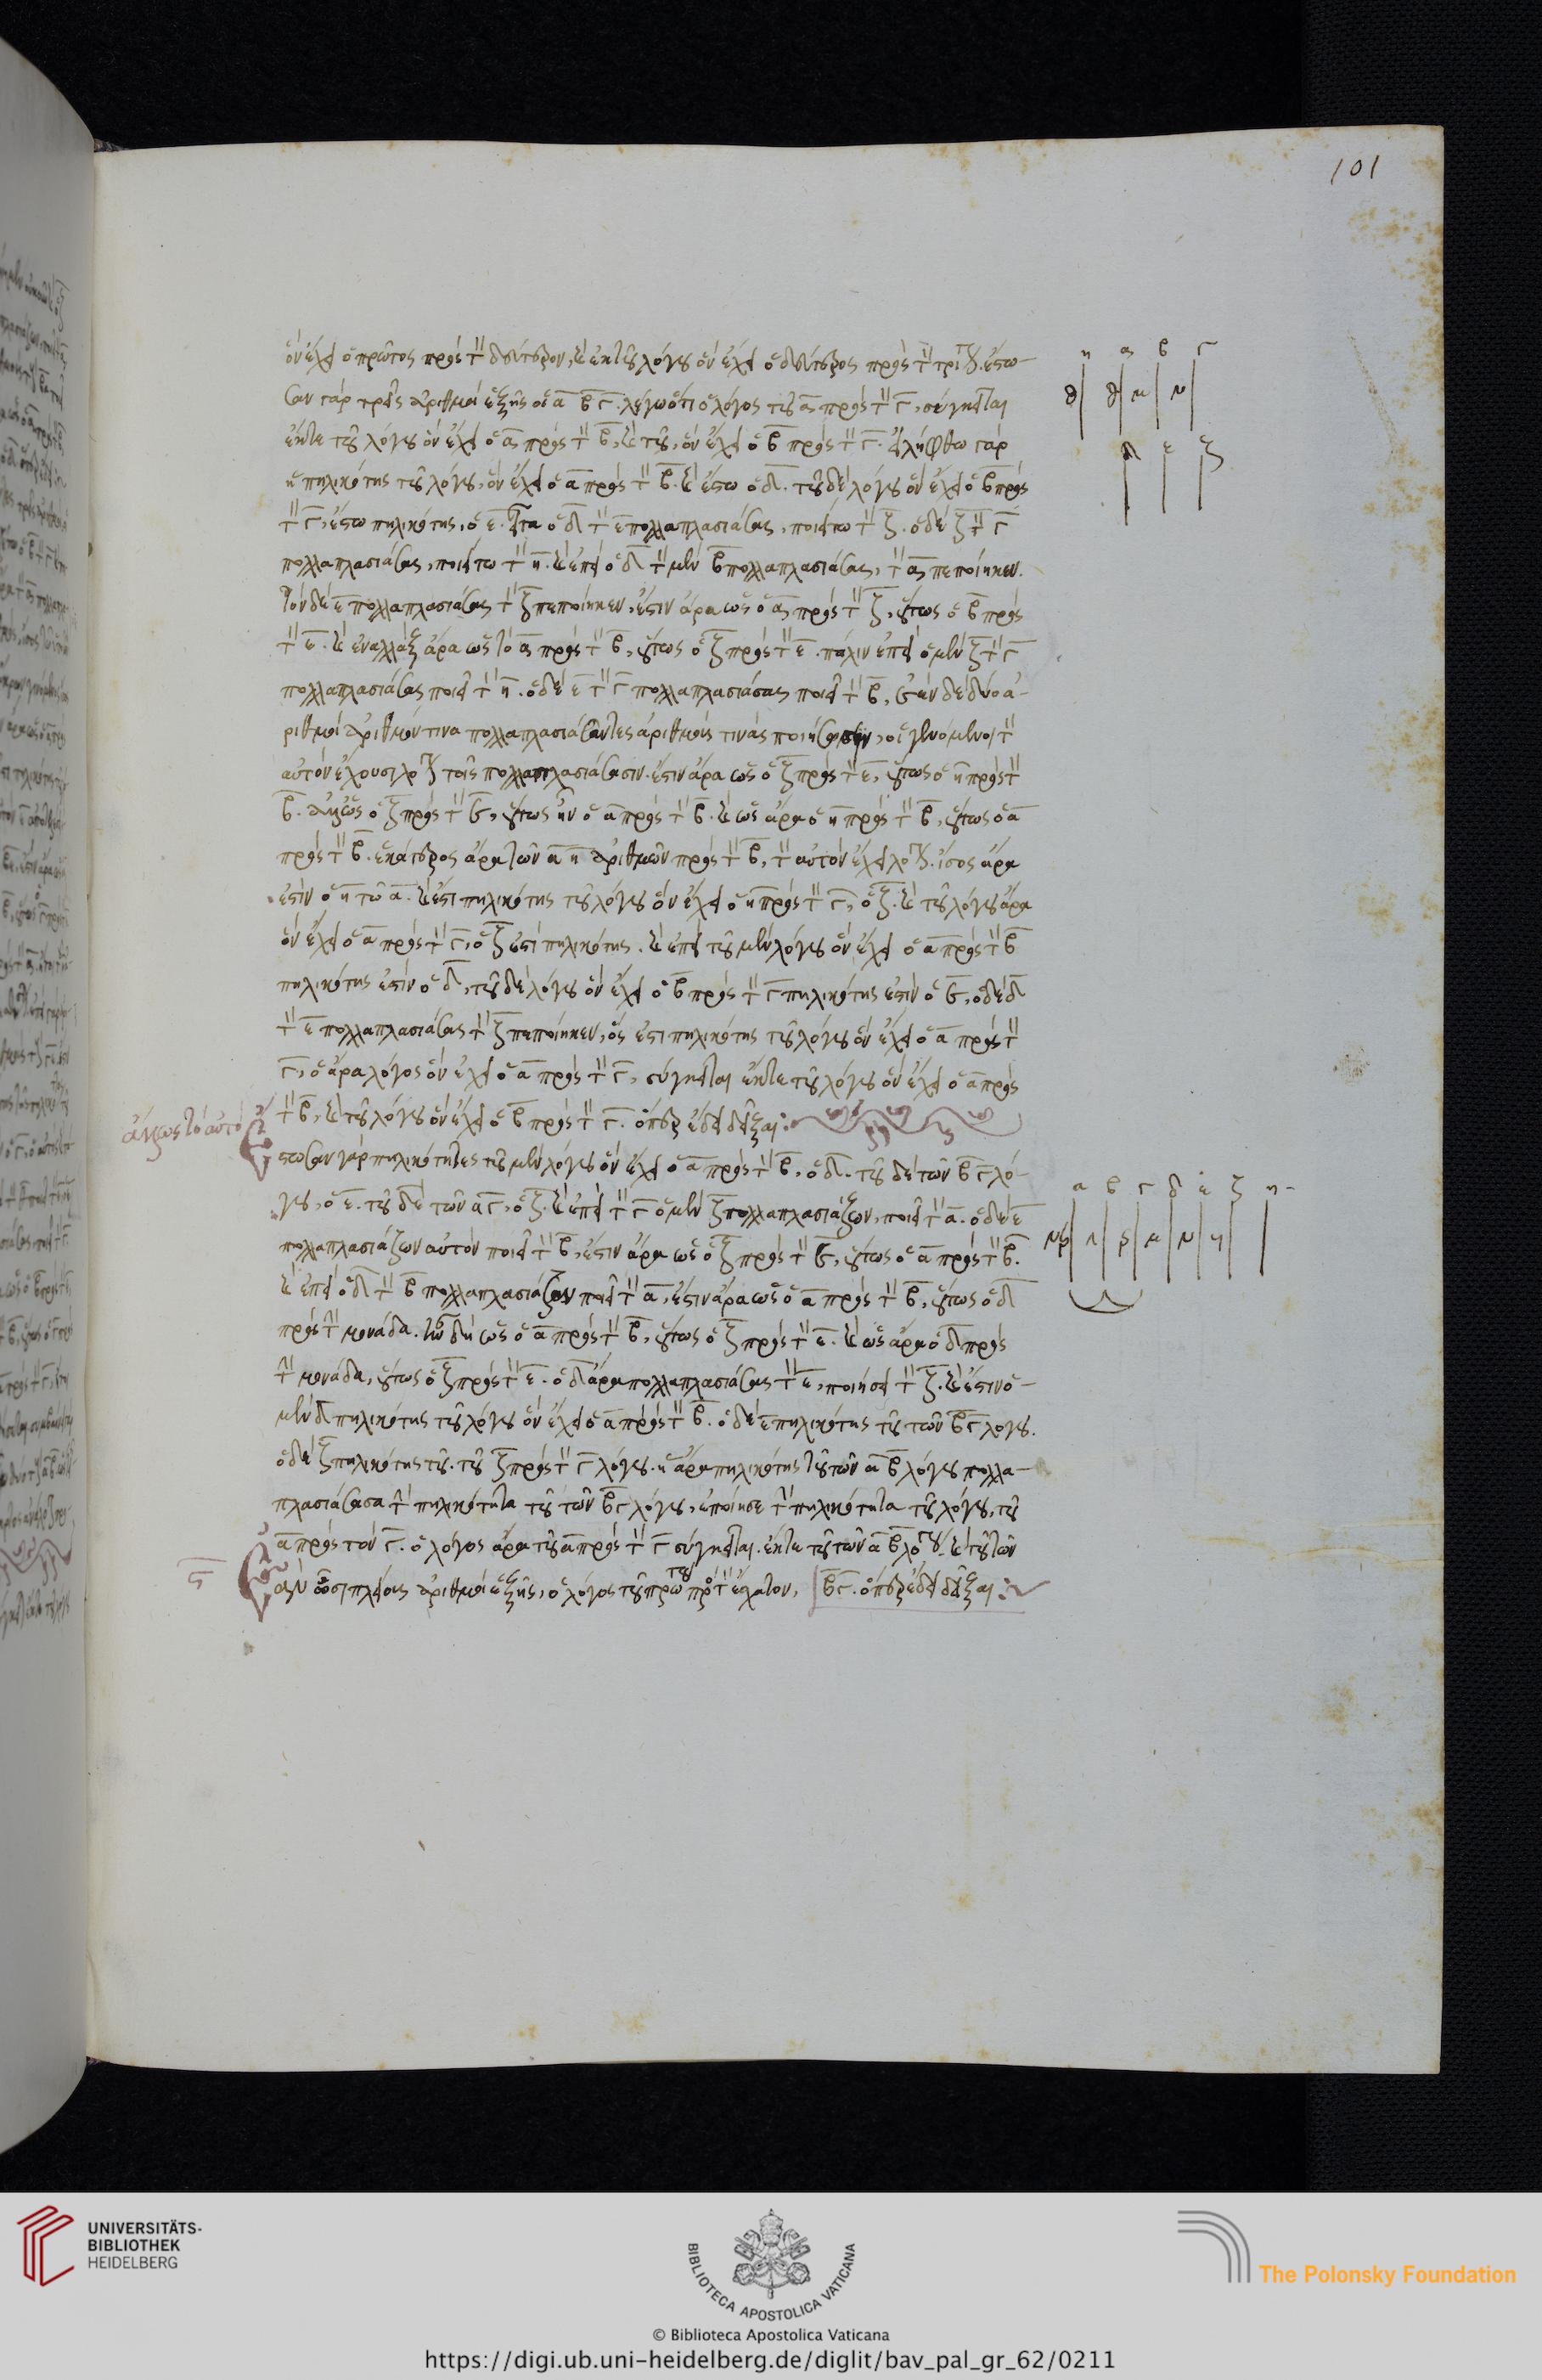 101
ὃν ἔχει ὁ πρῶτος πρὸς τὸν δεύτερον, καὶ ἐκ τοῦ λόγου ὃν ἔχει ὁ δεύτερος πρὸς τὸν τρίτον. ἔστω-
σαν γὰρ τρεῖς ἀριθμοὶ ἑξῆς οἱ α β γ. λέγω ὅτι ὁ λόγος τοῦ α πρὸς τὸν γ, σύγκειται
ἔκ τε τοῦ λόγου ὃν ἔχει ὁ α πρὸς τὸν β, καὶ τοῦ, ὃν ἔχει ὁ β πρὸς τὸν γ. εἰλήφθω γὰρ
ἡ πηλικότης τοῦ λόγου, ὃν ἔχει ὁ α πρὸς τὸν β. καὶ ἔστω ὁ δ. τοῦ δὲ λόγου ὃν ἔχει ὁ β πρὸς
τὸν γ, ἔστω πηλικότης, ὁ ε. εἶτα ὁ δ τὸν ε πολλαπλασιάσας, ποιείτω τὸν ζ. ὁ δὲ ζ τὸν γ
πολλαπλασιάσας, ποιείτω τὸν η. καὶ ἐπεὶ ὁ δ τὸν μὲν β πολλαπλασιάσας, τὸν α πεποίηκεν.
τὸν δὲ ε πολλαπλασιάσας τὸν ζ πεποίηκεν, ἔστιν ἄρα ὡς ὁ α πρὸς τὸν ζ, οὕτως ὁ β πρὸς
τὸν ε. καὶ ἐναλλὰξ ἄρα ὡς ὁ α πρὸς τὸν β, οὕτως ὁ ζ πρὸς τὸν ε. πάλιν ἐπεὶ ὁ μὲν ζ τὸν γ
πολλαπλασιάσας ποιεῖ τὸν η. ὁ δὲ ε τὸν γ πολλαπλασιάσας ποιεῖ τὸν β, ἐὰν δὲ δύο ἀ-
ριθμοὶ ἀριθμόν τινα πολλαπλασιάσαντες ἀριθμούς τινας ποιήσωσιν, οἱ γενόμενοι τὸν
αὐτὸν ἔχουσι λόγον τοῖς πολλαπλασιάσασιν. ἔστιν ἄρα ὡς ὁ ζ πρὸς τὸν ε, οὕτως ὁ η πρὸς τὸν
β. ἀλλ' ὡς ὁ ζ πρὸς τὸν ε, οὕτως ἦν ὁ α πρὸς τὸν β. καὶ ὡς ἄρα ὁ η πρὸς τὸν β, οὕτως ὁ α
πρὸς τὸν β. ἑκάτερος ἄρα τῶν α η ἀριθμῶν πρὸς τὸν β, τὸν αὐτὸν ἔχει λόγον. ἴσος ἄρα
ἐστὶν ὁ η τῷ α. καὶ ἔστι πηλικότης τοῦ λόγου ὃν ἔχει ὁ η πρὸς τὸν γ, ὁ ζ. καὶ τοῦ λόγου ἄρα
ὃν ἔχει ὁ α πρὸς τὸν γ, ὁ ζ ἐστὶ πηλικότης. καὶ ἐπεὶ τοῦ μὲν λόγου ὃν ἔχει ὁ α πρὸς τὸν β
πηλικότης ἐστὶν ὁ δ, τοῦ δὲ λόγου ὃν ἔχει ὁ β πρὸς τὸν γ πηλικότης ἐστὶν ὁ ε, ὁ δὲ δ
τὸν ε πολλαπλασιάσας τὸν ζ πεποίηκεν, ὅς ἐστι πηλικότης τοῦ λόγου ὃν ἔχει ὁ α πρὸς τὸν
γ, ὁ ἄρα λόγος ὃν ἔχει ὁ α πρὸς τὸν γ, σύγκειται ἔκ τε τοῦ λόγου ὃν ἔχει ὁ α πρὸς
τὸν β, καὶ τοῦ λόγου ὃν ἔχει ὁ β πρὸς τὸν γ. ὅπερ ἔδει δεῖξαι:
ἄλλως τὸ αὐτό
ἔστωσαν γὰρ πηλικότητες τοῦ μὲν λόγου ὃν ἔχει ὁ α πρὸς τὸν β, ὁ δ. τοῦ δὲ τῶν β γ λό-
γου, ὁ ε. τοῦ δὲ τῶν α γ, ὁ ζ. καὶ ἐπεὶ τὸν γ ὁ μὲν ζ πολλαπλασιάζων, ποιεῖ τὸν α. ὁ δὲ ε
πολλαπλασιάζων αὐτὸν ποιεῖ τὸν β, ἔστιν ἄρα ὡς ὁ ζ πρὸς τὸν ε, οὕτως ὁ α πρὸς τὸν β.
καὶ ἐπεὶ ὁ δ τὸν β πολλαπλασιάζων ποιεῖ τὸν α, ἔστιν ἄρα ὡς ὁ α πρὸς τὸν β, οὕτως ὁ δ
πρὸς τὴν μονάδα. ἦν δὴ ὡς ὁ α πρὸς τὸν β, οὕτως ὁ ζ πρὸς τὸν ε. καὶ ὡς ἄρα ὁ δ πρὸς
τὴν μονάδα, οὕτως ὁ ζ πρὸς τὸν ε. ὁ δ ἄρα πολλαπλασιάσας τὸν ε, ποιήσει τὸν ζ. καὶ ἔστιν ὁ
μὲν δ πηλικότης τοῦ λόγου ὃν ἔχει ὁ α πρὸς τὸν β. ὁ δὲ ε πηλικότης τοῦ τῶν β γ λόγου.
ὁ δὲ ζ πηλικότης τοῦ. τοῦ ζ πρὸς τὸν γ λόγου. ἡ ἄρα πηλικότης τοῦ τῶν α β λόγου πολλα-
πλασιάσασα τὴν πηλικότητα τοῦ τῶν β γ λόγου, ἐποίησε τὴν πηλικότητα τοῦ λόγου, τοῦ
α πρὸς τὸν γ. ὁ λόγος ἄρα τοῦ α πρὸς τὸν γ σύγκειται. ἔκ τε τοῦ τῶν α β λόγου. καὶ τοῦ τῶν
β γ. ὅπερ ἔδει δεῖξαι:
ἐὰν ὦσι πλείους ἀριθμοὶ ἑξῆς, ὁ λόγος τοῦ πρώτου πρὸς τὸν ἔσχατον,
η α β γ
δ ε ζ
α β γ δ ε ζ η
UNIVERSITÄTS-
BIBLIOTHEK
HEIDELBERG
BIBLIOTECA APOSTOLICA VATICANA
The Polonsky Foundation
© Biblioteca Apostolica Vaticana
https://digi.ub.uni-heidelberg.de/diglit/bav_pal_gr_62/0211